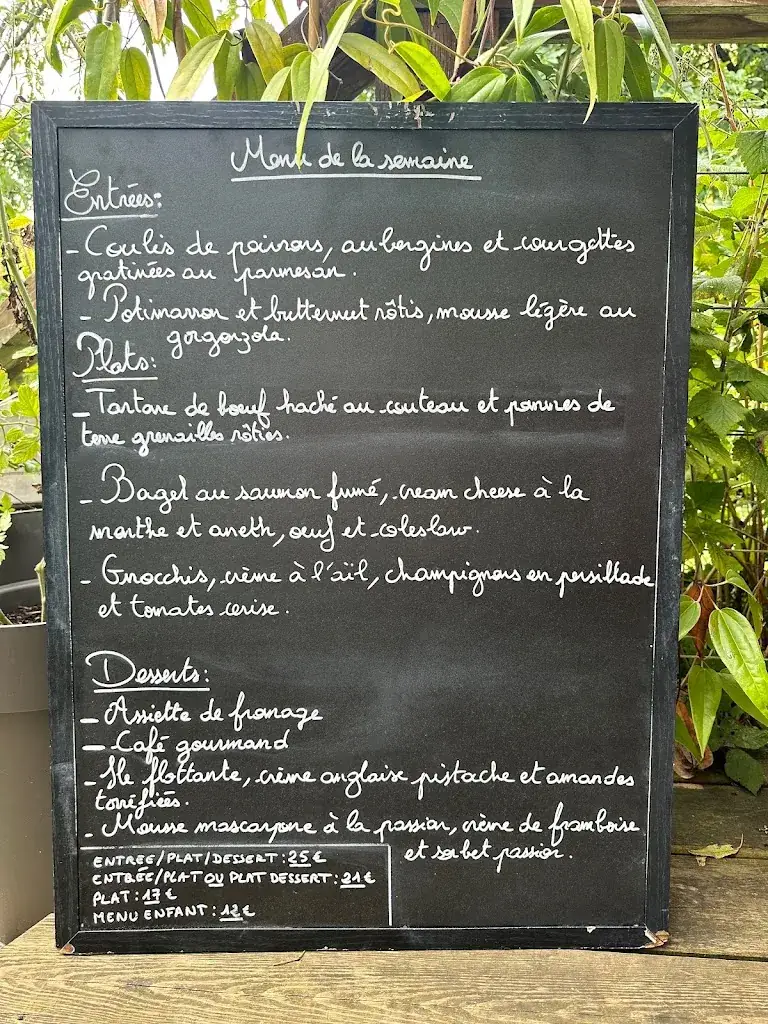 Menu de la semaine
Entrées:
- Coulis de poivrons, aubergines et courgettes
gratinées au parmesan.
- Potimarron et butternut rôtis, mousse légère au
gorgonzola.
Plats:
- Tartare de boeuf haché au couteau et pommes de
terre grenailles rôties.
- Bagel au saumon fumé, cream cheese à la
menthe et aneth, oeuf et coleslaw.
- Gnocchis, crème à l'aïl, champignons en persillade
et tomates cerise.
Desserts:
- Assiette de fromage
- Café gourmand
- Ile flottante, crème anglaise pistache et amandes
torréfiées.
- Mousse mascarpone à la passion, crème de framboise
et sorbet passion.
ENTREE/PLAT/DESSERT : 25 €
ENTRÉE/PLAT OU PLAT DESSERT : 21 €
PLAT : 17 €
MENU ENFANT : 12 €